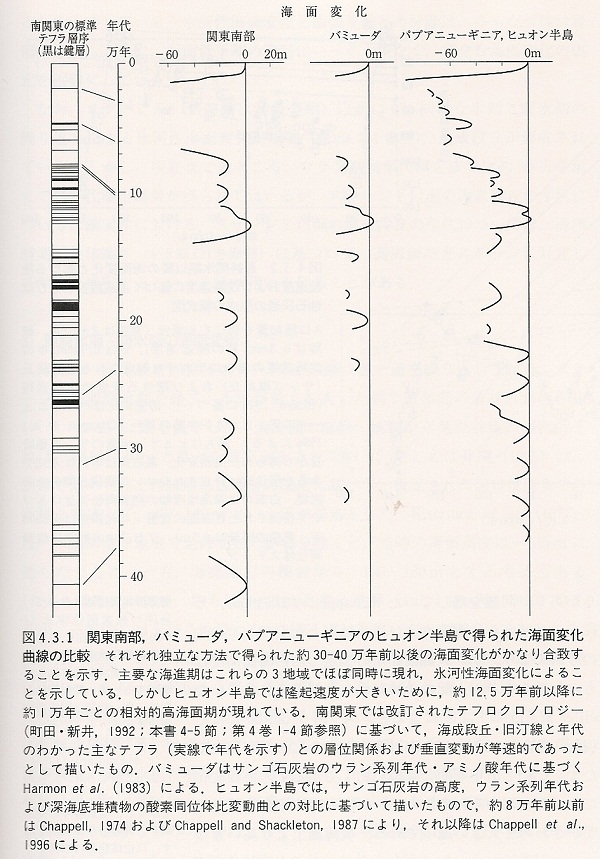 海面変化
南関東の標準
テフラ層序
(黒は鍵層)
年代
万年
関東南部
バミューダ
パプアニューギニア,ヒュオン半島
-60 0 20m
0m
-60 0m
0
10
20
30
40
図4.3.1 関東南部,バミューダ,パプアニューギニアのヒュオン半島で得られた海面変化
曲線の比較 それぞれ独立な方法で得られた約30-40万年前以後の海面変化がかなり合致す
ることを示す.主要な海進期はこれらの3地域でほぼ同時に現れ,氷河性海面変化によるこ
とを示している.しかしヒュオン半島では隆起速度が大きいために,約12.5万年前以降に
約1万年ごとの相対的高海面期が現れている.南関東では改訂されたテフロクロノロジー
(町田・新井,1992;本書4-5節;第4巻1-4節参照)に基づいて,海成段丘・旧汀線と年代
のわかった主なテフラ(実線で年代を示す)との層位関係および垂直変動が等速的であった
として描いたもの.バミューダはサンゴ石灰岩のウラン系列年代・アミノ酸年代に基づく
Harmon et al. (1983) による.ヒュオン半島では,サンゴ石灰岩の高度,ウラン系列年代お
よび深海底堆積物の酸素同位体比変動曲との対比に基づいて描いたもので,約8万年前以前
はChappell, 1974およびChappell and Shackleton, 1987により,それ以降はChappell et al.,
1996による.